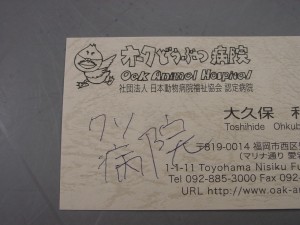 オークどうぶつ病院
Oak Animal Hospital
社団法人 日本動物病院福祉協会 認定病院
クソ
病院
大久保
Toshihide Ohkub
〒819-0014 福岡市西区
(マリナ通り 愛
1-1-11 Toyohama Nisiku Fu
Tel 092-885-3000 Fax 092-
URL http://www.oak-a